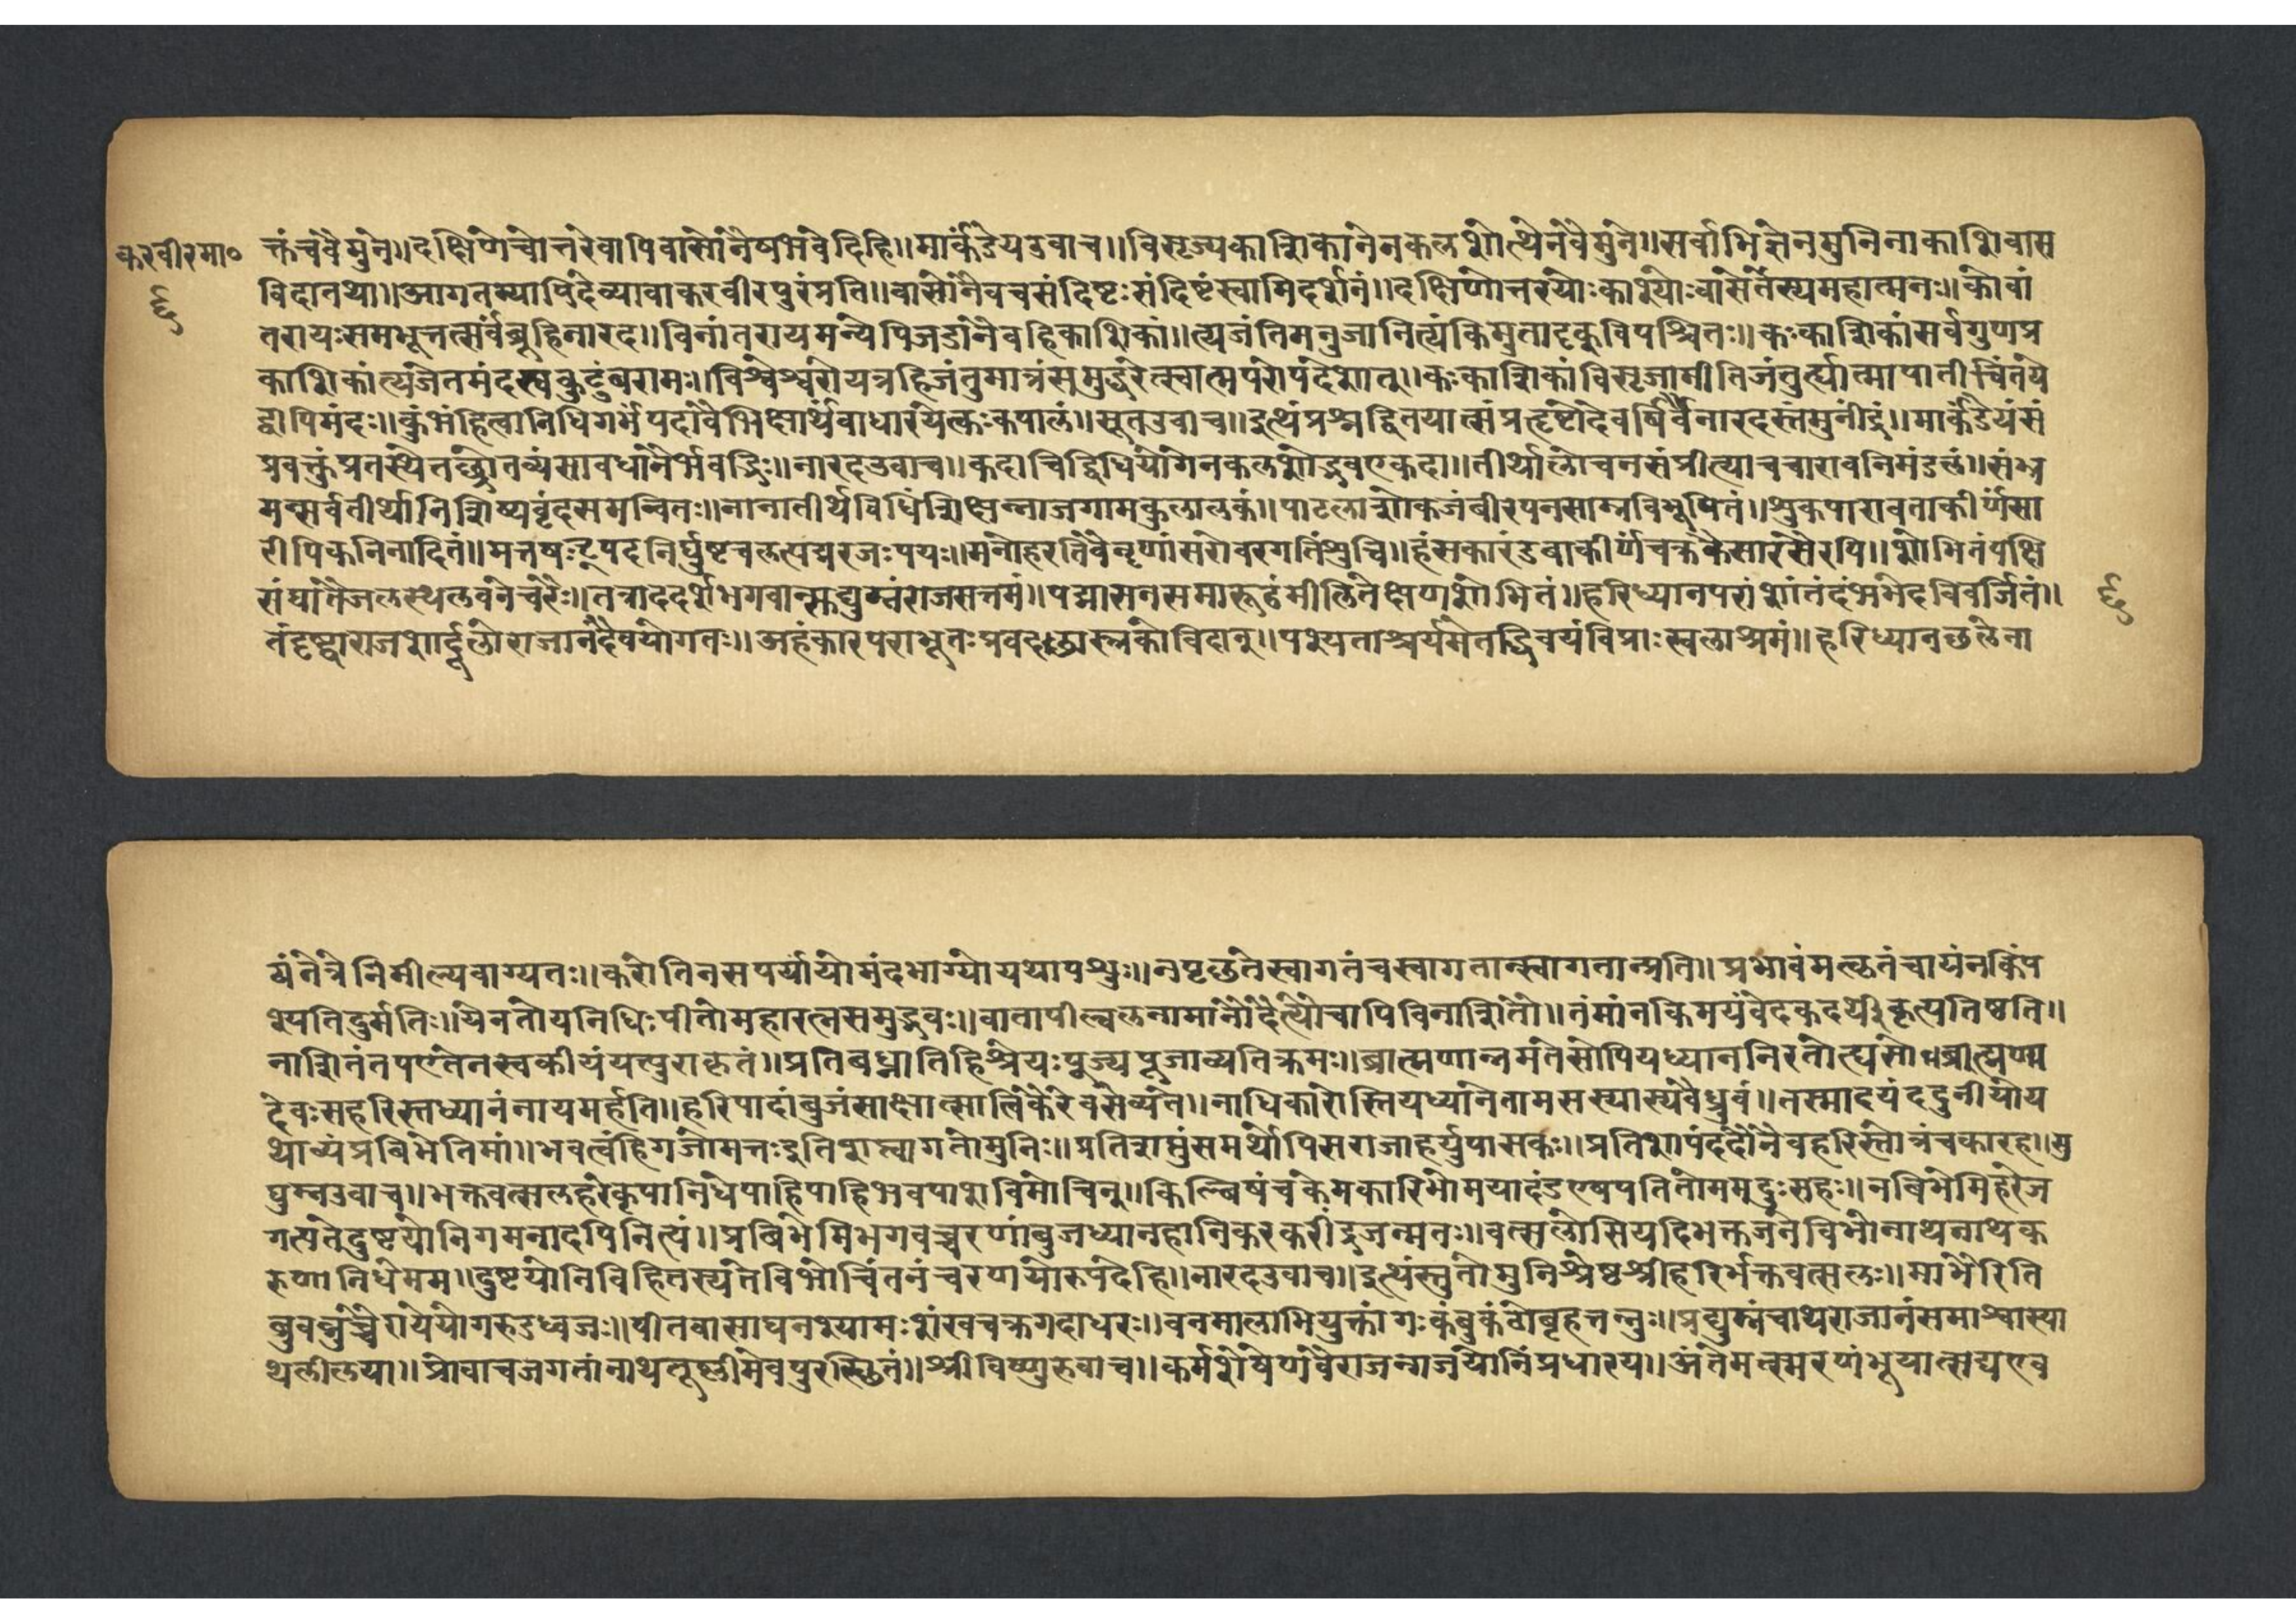 करवीरमा०
६
त्तंचवैमुने॥दक्षिणेचोत्तरेवापिवासोनैषभवेदिहि॥मार्कंडेयउवाच॥विसृज्यकाशिकांनेनकलशोत्थेनवैमुने॥सर्वाभिज्ञेनमुनिनाकाशिवास
विदातथा॥आगतम्यापिदेव्यावाकरवीरपुरंप्रति॥वासोनैवचसंदिष्टःसंदिष्टंस्वामिदर्शनं॥दक्षिणोत्तरयोःकाश्योःवासेर्तस्यमहात्मनः॥कोवां
तरायःसमभूत्तत्सर्वंब्रूहिनारद॥विनांतरायमन्येपिजडानैवहिकाशिकां॥त्यजंतिमनुजानित्यंकिमुतादृक्कुविपश्चितः॥कःकाशिकांसर्वगुणप्र
काशिकांत्यजेतमंदस्वकुटुंबरामः॥विश्वेश्वरोयत्रहिजंतुमात्रंसमुद्धरेत्स्वात्मपरोपदेशात्॥कःकाशिकांविसृजामीतिजंतुर्ह्यात्मापातीचिंतये
द्वापिमंदः॥कुंभंहित्वानिधिगर्भंपदांवैभिक्षार्थंवाधारयेत्कःकपालं॥सूतउवाच॥इत्थंप्रश्नद्वितयात्संप्रहृष्टोदेवर्षिर्वैनारदस्तंमुनींद्रं॥मार्कंडेयंसं
प्रवक्तुंप्रतस्थेतछ्रोतव्यंसावधानैर्भवद्भिः॥नारदउवाच॥कदाचिद्विधियोगेनकलशोद्भवएकदा॥तीर्थालोचनसंप्रीत्याचचारावनिमंडलं॥संभ्र
मन्सर्वतीर्थानिशिष्यवृंदसमन्वितः॥नानातीर्थविधिंशिक्षन्नाजगामकुलालकं॥पाटलाशोकजंबीरपनसाम्रविभूषितं॥शुकपारावताकीर्णंसा
रीपिकनिनादितं॥मत्तषट्पदनिर्घुष्टचलत्पद्मरजःपयः॥मनोहरतिवैनृणांसरोवरगतिंशुचि॥हंसकारंडवाकीर्णंचक्रकैसारसैरपि॥शोभितंपक्षि
संघातैजलस्थलवनेचरैः॥तत्राददर्शभगवान्स्मद्युम्नंराजसत्तमं॥पद्मासनसमारूढंमीलितेक्षणशोभितं॥हरिध्यानपरंशांतंदंभभेदविवर्जितं॥
६
तंदृष्ट्वाराजशार्दूलोराजानंदैवयोगतः॥अहंकारपराभूतःप्रवदछास्त्रकोविदान्॥पश्यताश्चर्यमेतद्धिवयंविप्राःस्वलाश्रमं॥हरिध्यानछलेना
यंनेत्रेनिमील्यवाग्यतः॥करोतिनसपर्यांयोमंदभाग्योयथापशुः॥नपृछतेस्वागतंचस्वागतान्स्वागतान्प्रति॥प्रभावंमत्कृतंचायंनकिंप
श्यतिदुर्मतिः॥येनतोयनिधिःपीतोमहारत्नसमुद्भवः॥वातापील्वलनामानौदैत्यौचापिविनाशितौ॥तंमांनकिमयंवेदकदर्थीकृत्यतिष्ठति॥
नाशितंतपएतेनस्वकीयंयत्पुराकृतं॥प्रतिबध्नातिहिश्रेयःपूज्यपूजाव्यतिक्रमः॥ब्राह्मणान्नमतेसोपियध्याननिरतोह्यसोमब्राह्मण्य
देवःसहरिस्तध्यानंनायमर्हति॥हरिपादांबुजंसाक्षात्सात्विकैरेवसेव्यते॥नाधिकारोस्तियध्यानेतामसस्यास्यवैध्रुवं॥तस्मादयंददुनीयोय
थाव्यंप्रबिभेतिमां॥भवत्वंहिगजोमत्तःइतिशप्त्वागतोमुनिः॥प्रतिशप्तुंसमर्थोपिसराजाहर्युपासकः॥प्रतिशापंददौनैवहरिस्तोत्रंचकारह॥सु
घुम्नउवाच॥भक्तवत्सलहरेकृपानिधेपाहिपाहिभवपाशविमोचिन्॥किल्बिषंचकेमकारिभोमयादंडएषपतितोममदुःसहः॥नबिभेमिहरेज
गत्पतेदुष्टयोनिगमनादपिनित्यं॥प्रबिभेमिभगवच्चरणांबुजध्यानहानिकरकरींद्रजन्मतः॥वत्सलोसियदिभक्तजनेविभोनाथनाथक
रुणानिधेमम॥दुष्टयोनिविहितस्यतेविभोचिंतनंचरणयोरुपदेहि॥नारदउवाच॥इत्थंस्तुतोमुनिश्रेष्ठश्रीहरिर्भक्तवत्सलः॥माभैरिति
ब्रुवन्नुच्चैराययौगरुडध्वजः॥पीतवासाघनश्यामःशंखचक्रगदाधरः॥वनमालाभियुक्तांगःकंबुकंठोबृहत्तनुः॥प्रद्युम्नंचाथराजानंसमाश्वास्या
थलीलया॥प्रोवाचजगतांनाथतूष्णीमेवपुरस्छितं॥श्रीविष्णुरुवाच॥कर्मशेषेणवैराजन्गजयोनिंप्रधारय॥अंतेमत्स्मरणंभूयात्सद्यएव